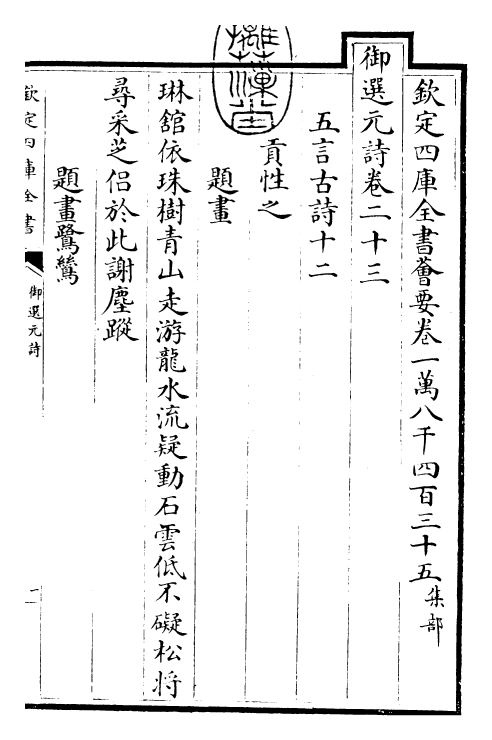 欽定四庫全書薈要卷一萬八千四百三十五集部
御選元詩卷二十三
五言古詩十二
貢性之
題畫
琳舘依珠樹青山走游龍水流疑動石雲低不礙松將
尋采芝侣於此謝塵蹤
題畫鷺鷥
欽定四庫全書
御選元詩
一